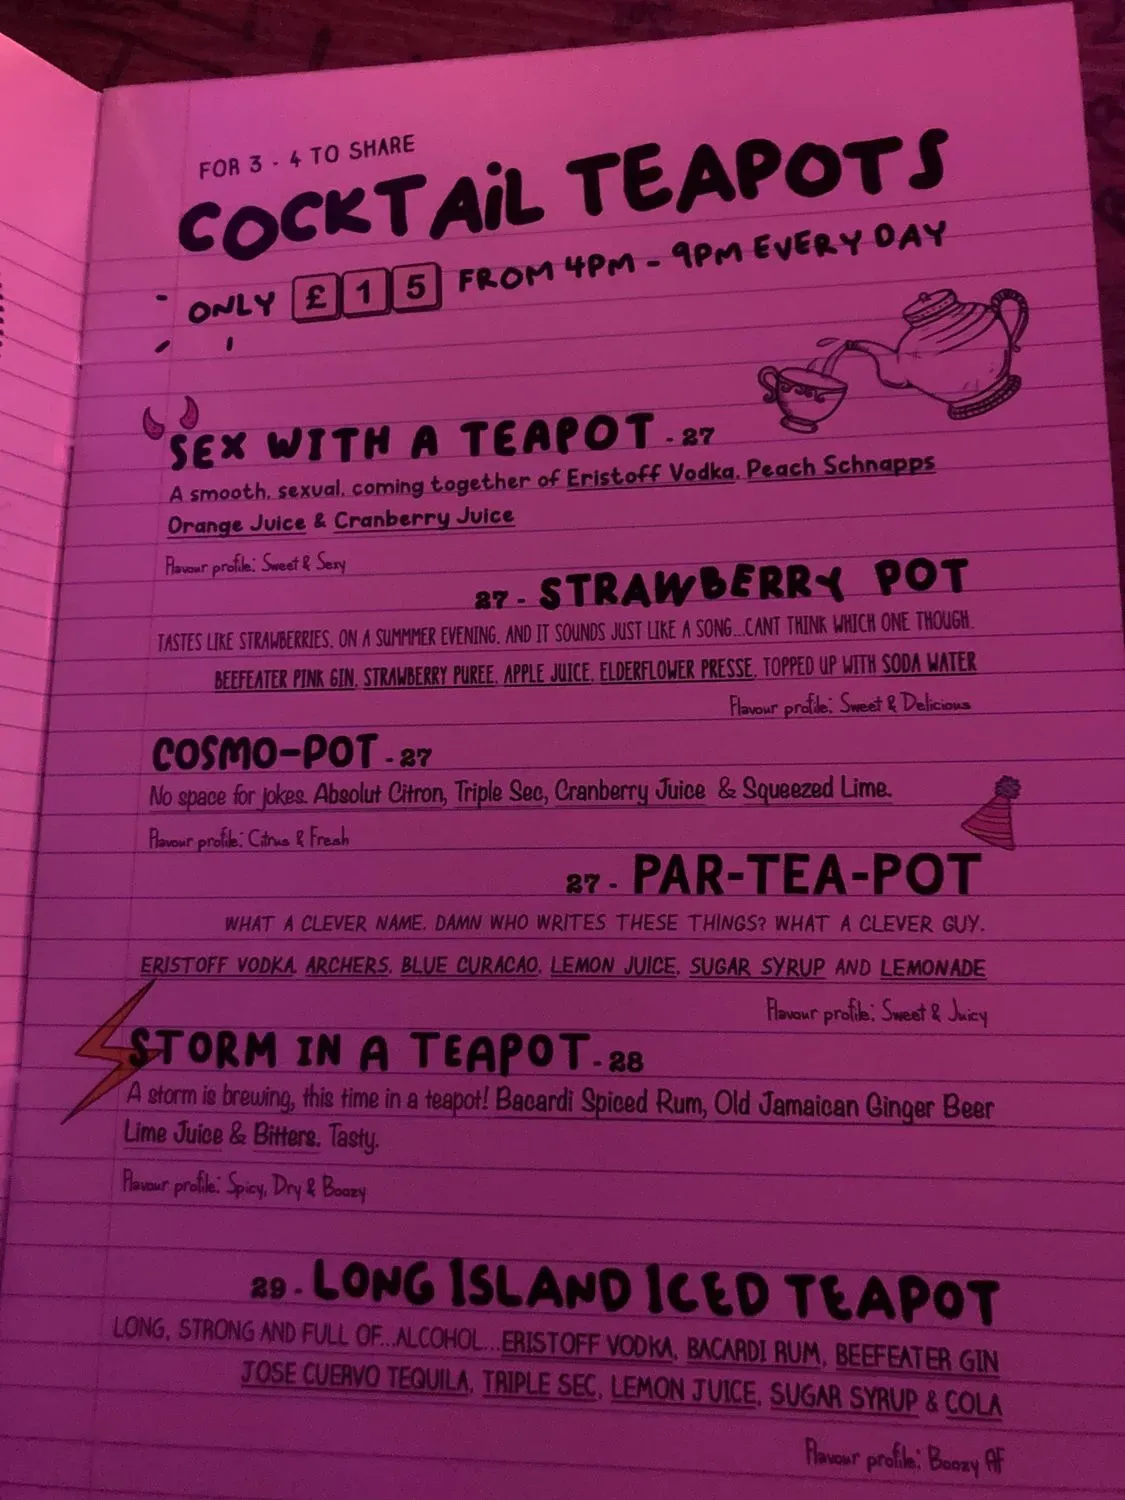 FOR 3 - 4 TO SHARE
COCKTAiL TEAPOTS
ONLY £15 FROM 4PM - 9PM EVERY DAY
SEX WITH A TEAPOT - 27
A smooth, sexual, coming together of Eristoff Vodka, Peach Schnapps
Orange Juice & Cranberry Juice
Flavour profile: Sweet & Sexy
27 - STRAWBERRY POT
TASTES LIKE STRAWBERRIES, ON A SUMMMER EVENING, AND IT SOUNDS JUST LIKE A SONG...CANT THINK WHICH ONE THOUGH.
BEEFEATER PINK GIN, STRAWBERRY PUREE, APPLE JUICE, ELDERFLOWER PRESSE, TOPPED UP WITH SODA WATER
Flavour profile: Sweet & Delicious
COSMO-POT - 27
No space for jokes. Absolut Citron, Triple Sec, Cranberry Juice & Squeezed Lime.
Flavour profile: Citrus & Fresh
27 - PAR-TEA-POT
WHAT A CLEVER NAME. DAMN WHO WRITES THESE THINGS? WHAT A CLEVER GUY.
ERISTOFF VODKA, ARCHERS, BLUE CURACAO, LEMON JUICE, SUGAR SYRUP AND LEMONADE
Flavour profile: Sweet & Juicy
STORM IN A TEAPOT - 28
A storm is brewing, this time in a teapot! Bacardi Spiced Rum, Old Jamaican Ginger Beer
Lime Juice & Bitters. Tasty.
Flavour profile: Spicy, Dry & Boozy
29 - LONG ISLAND ICED TEAPOT
LONG, STRONG AND FULL OF...ALCOHOL...ERISTOFF VODKA, BACARDI RUM, BEEFEATER GIN
JOSE CUERVO TEQUILA, TRIPLE SEC, LEMON JUICE, SUGAR SYRUP & COLA
Flavour profile: Boozy AF